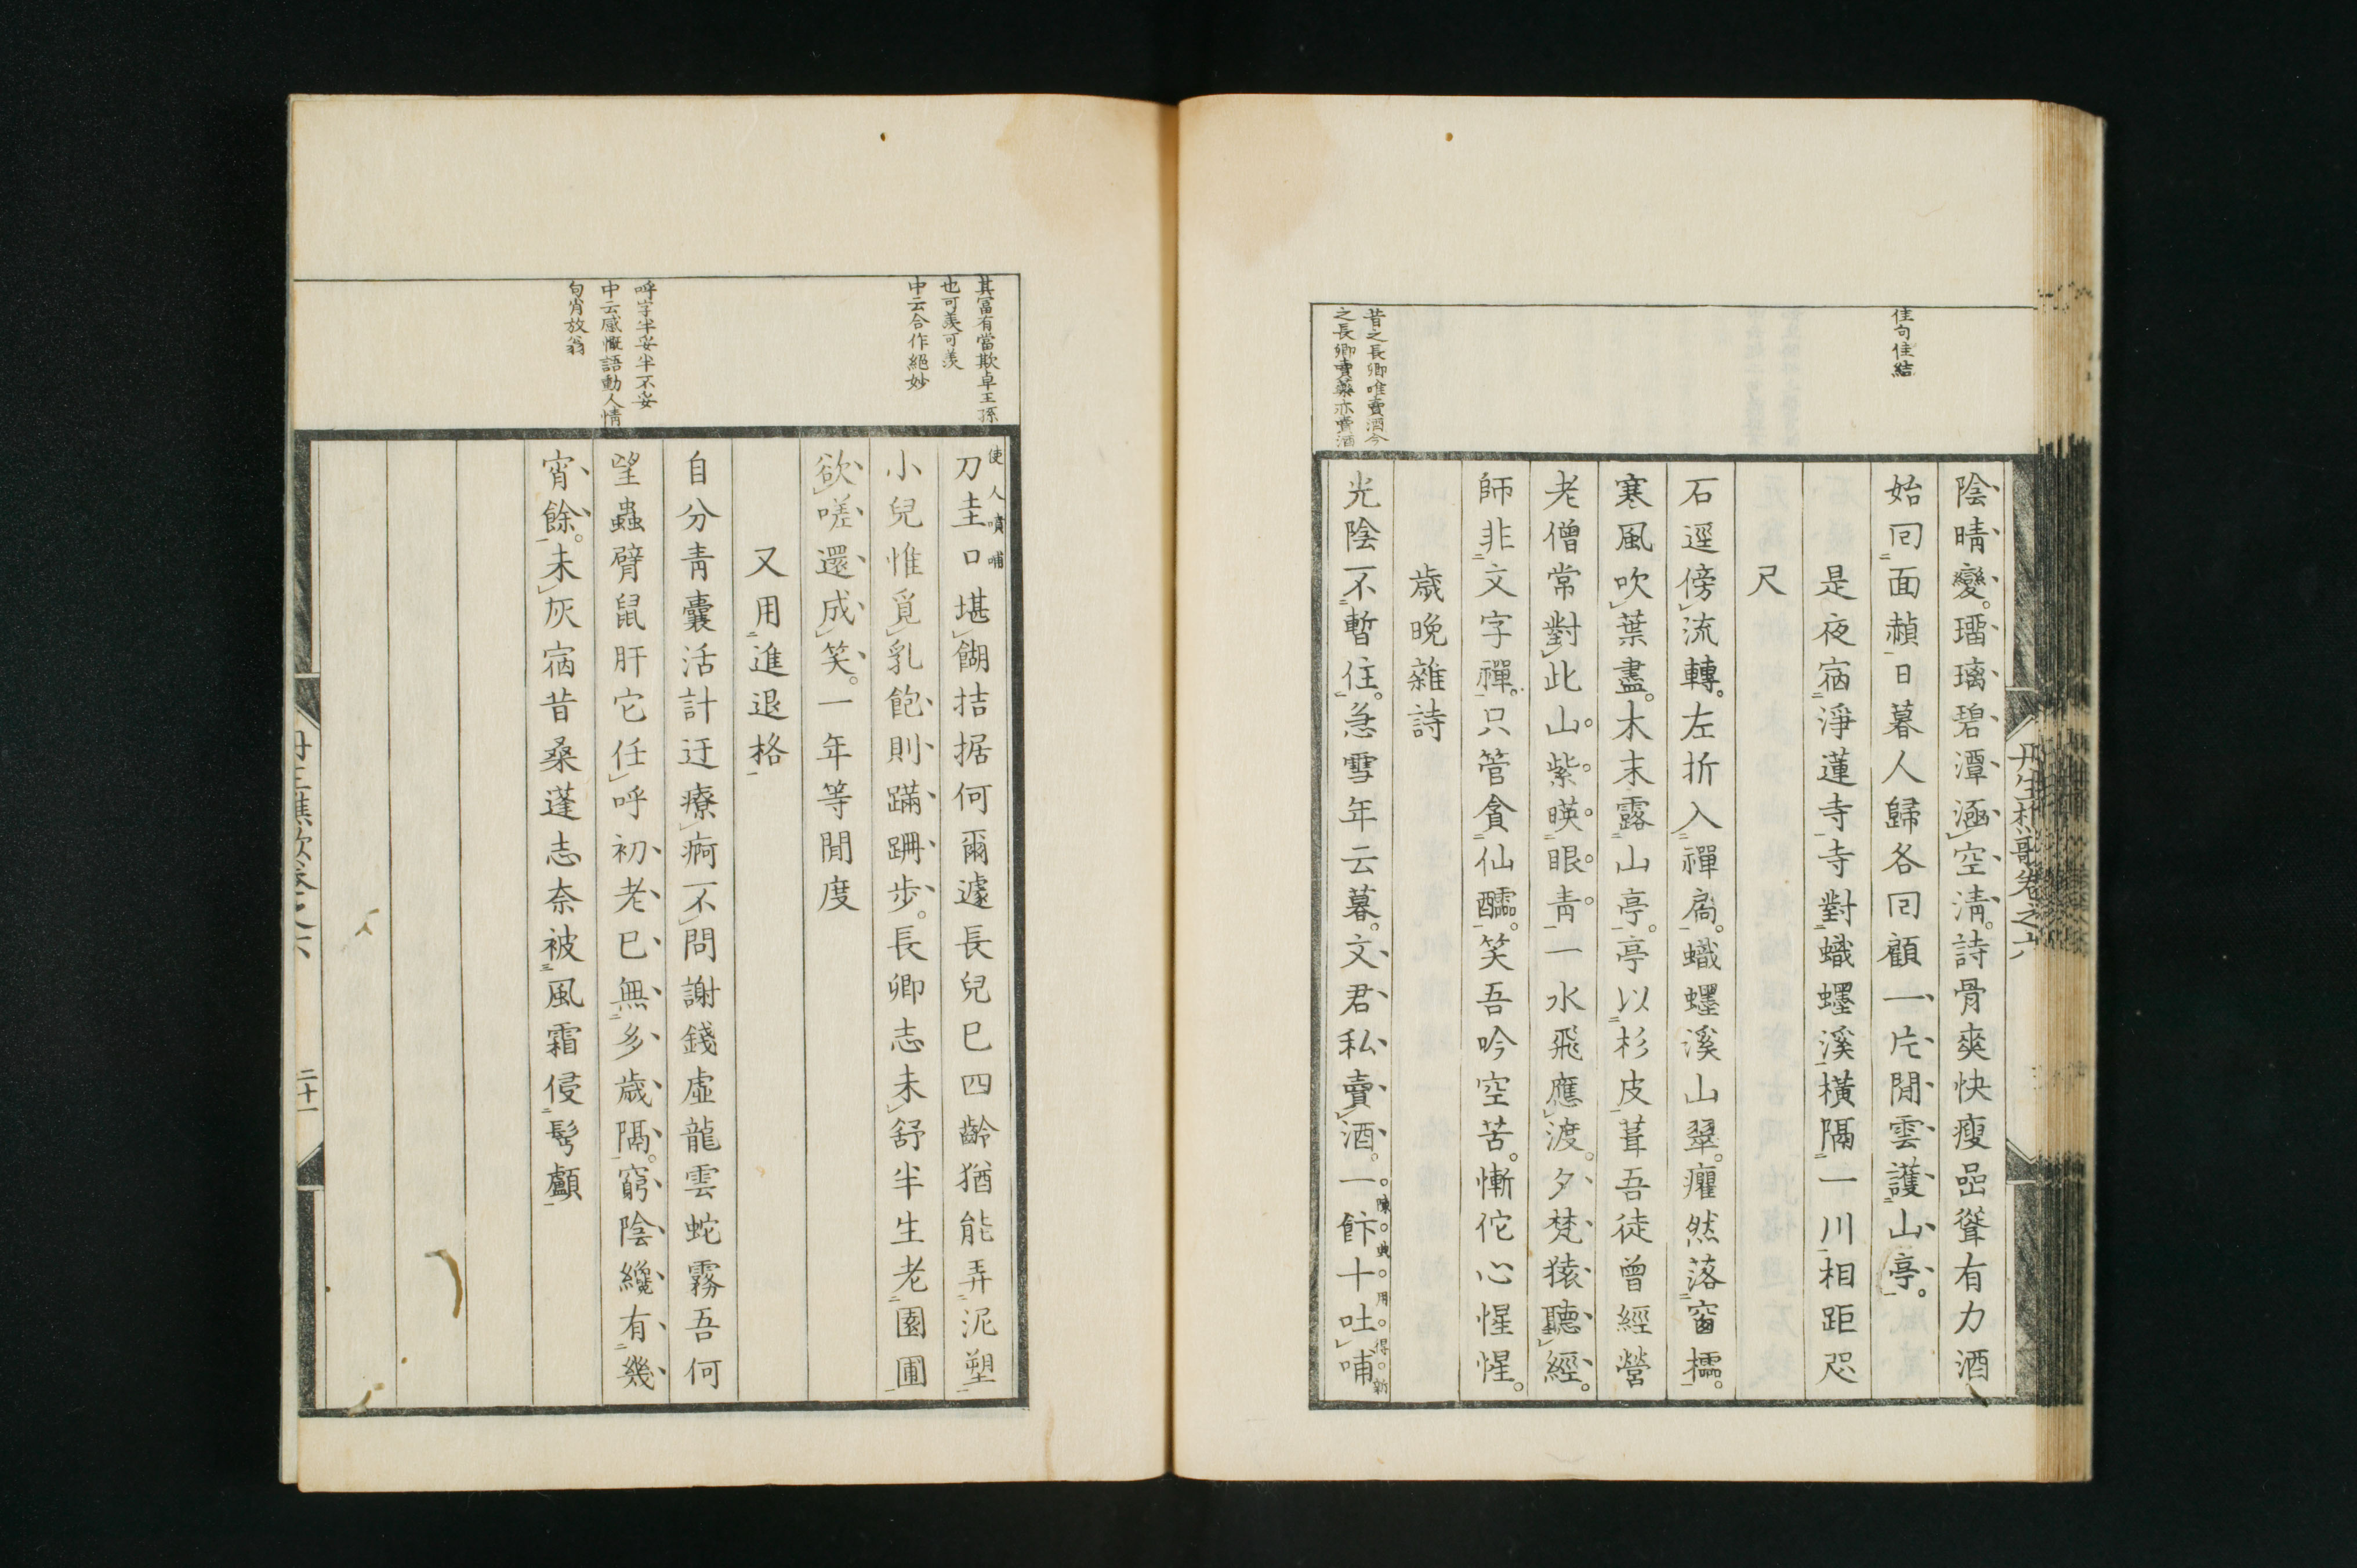 佳句佳結
昔之長卿唯賣酒今
之長卿賣藥亦賣酒
丹生樵歌卷之六
陰晴變璢璃碧潭涵空清詩骨爽快瘦嵒聳有力酒
始回面赬日暮人歸各回顧一片閒雲護山亭
是夜宿淨蓮寺寺對蟙蠌溪橫隔一川相距咫
尺
石逕傍流轉左折入禪扃溪山翠癯然落窗櫺
寒風吹葉盡木末露山亭亭以杉皮葺吾徒曾經營
老僧常對此山紫暎眼青一水飛應渡夕梵猿聽經
師非文字禪只管貪仙醹笑吾吟空苦慚佗心惺惺
歲晚雜詩
光陰不暫住急雪年云暮文君私賣酒一飰十吐哺
陳戲用得新
其冨有當欺卓王孫
也可羨可羨
中云合作絕妙
呼字半妥半不妥
中云感慨語動人情
句肖放翁
使人噴哺
刀圭口堪餬拮据何爾遽長兒已四齡猶能弄泥塑
小兒惟覓乳飽則蹣跚步長卿志未舒半生老園圃
欲嗟還成笑一年等閒度
又用進退格
自分靑囊活計迂療痾不問謝錢虛龍雲蛇霧吾何
望蟲臂鼠肝它任呼初老已無多歲隔窮陰纔有幾
宵餘未灰宿昔桑蓬志奈被風霜侵髩顱
二十一